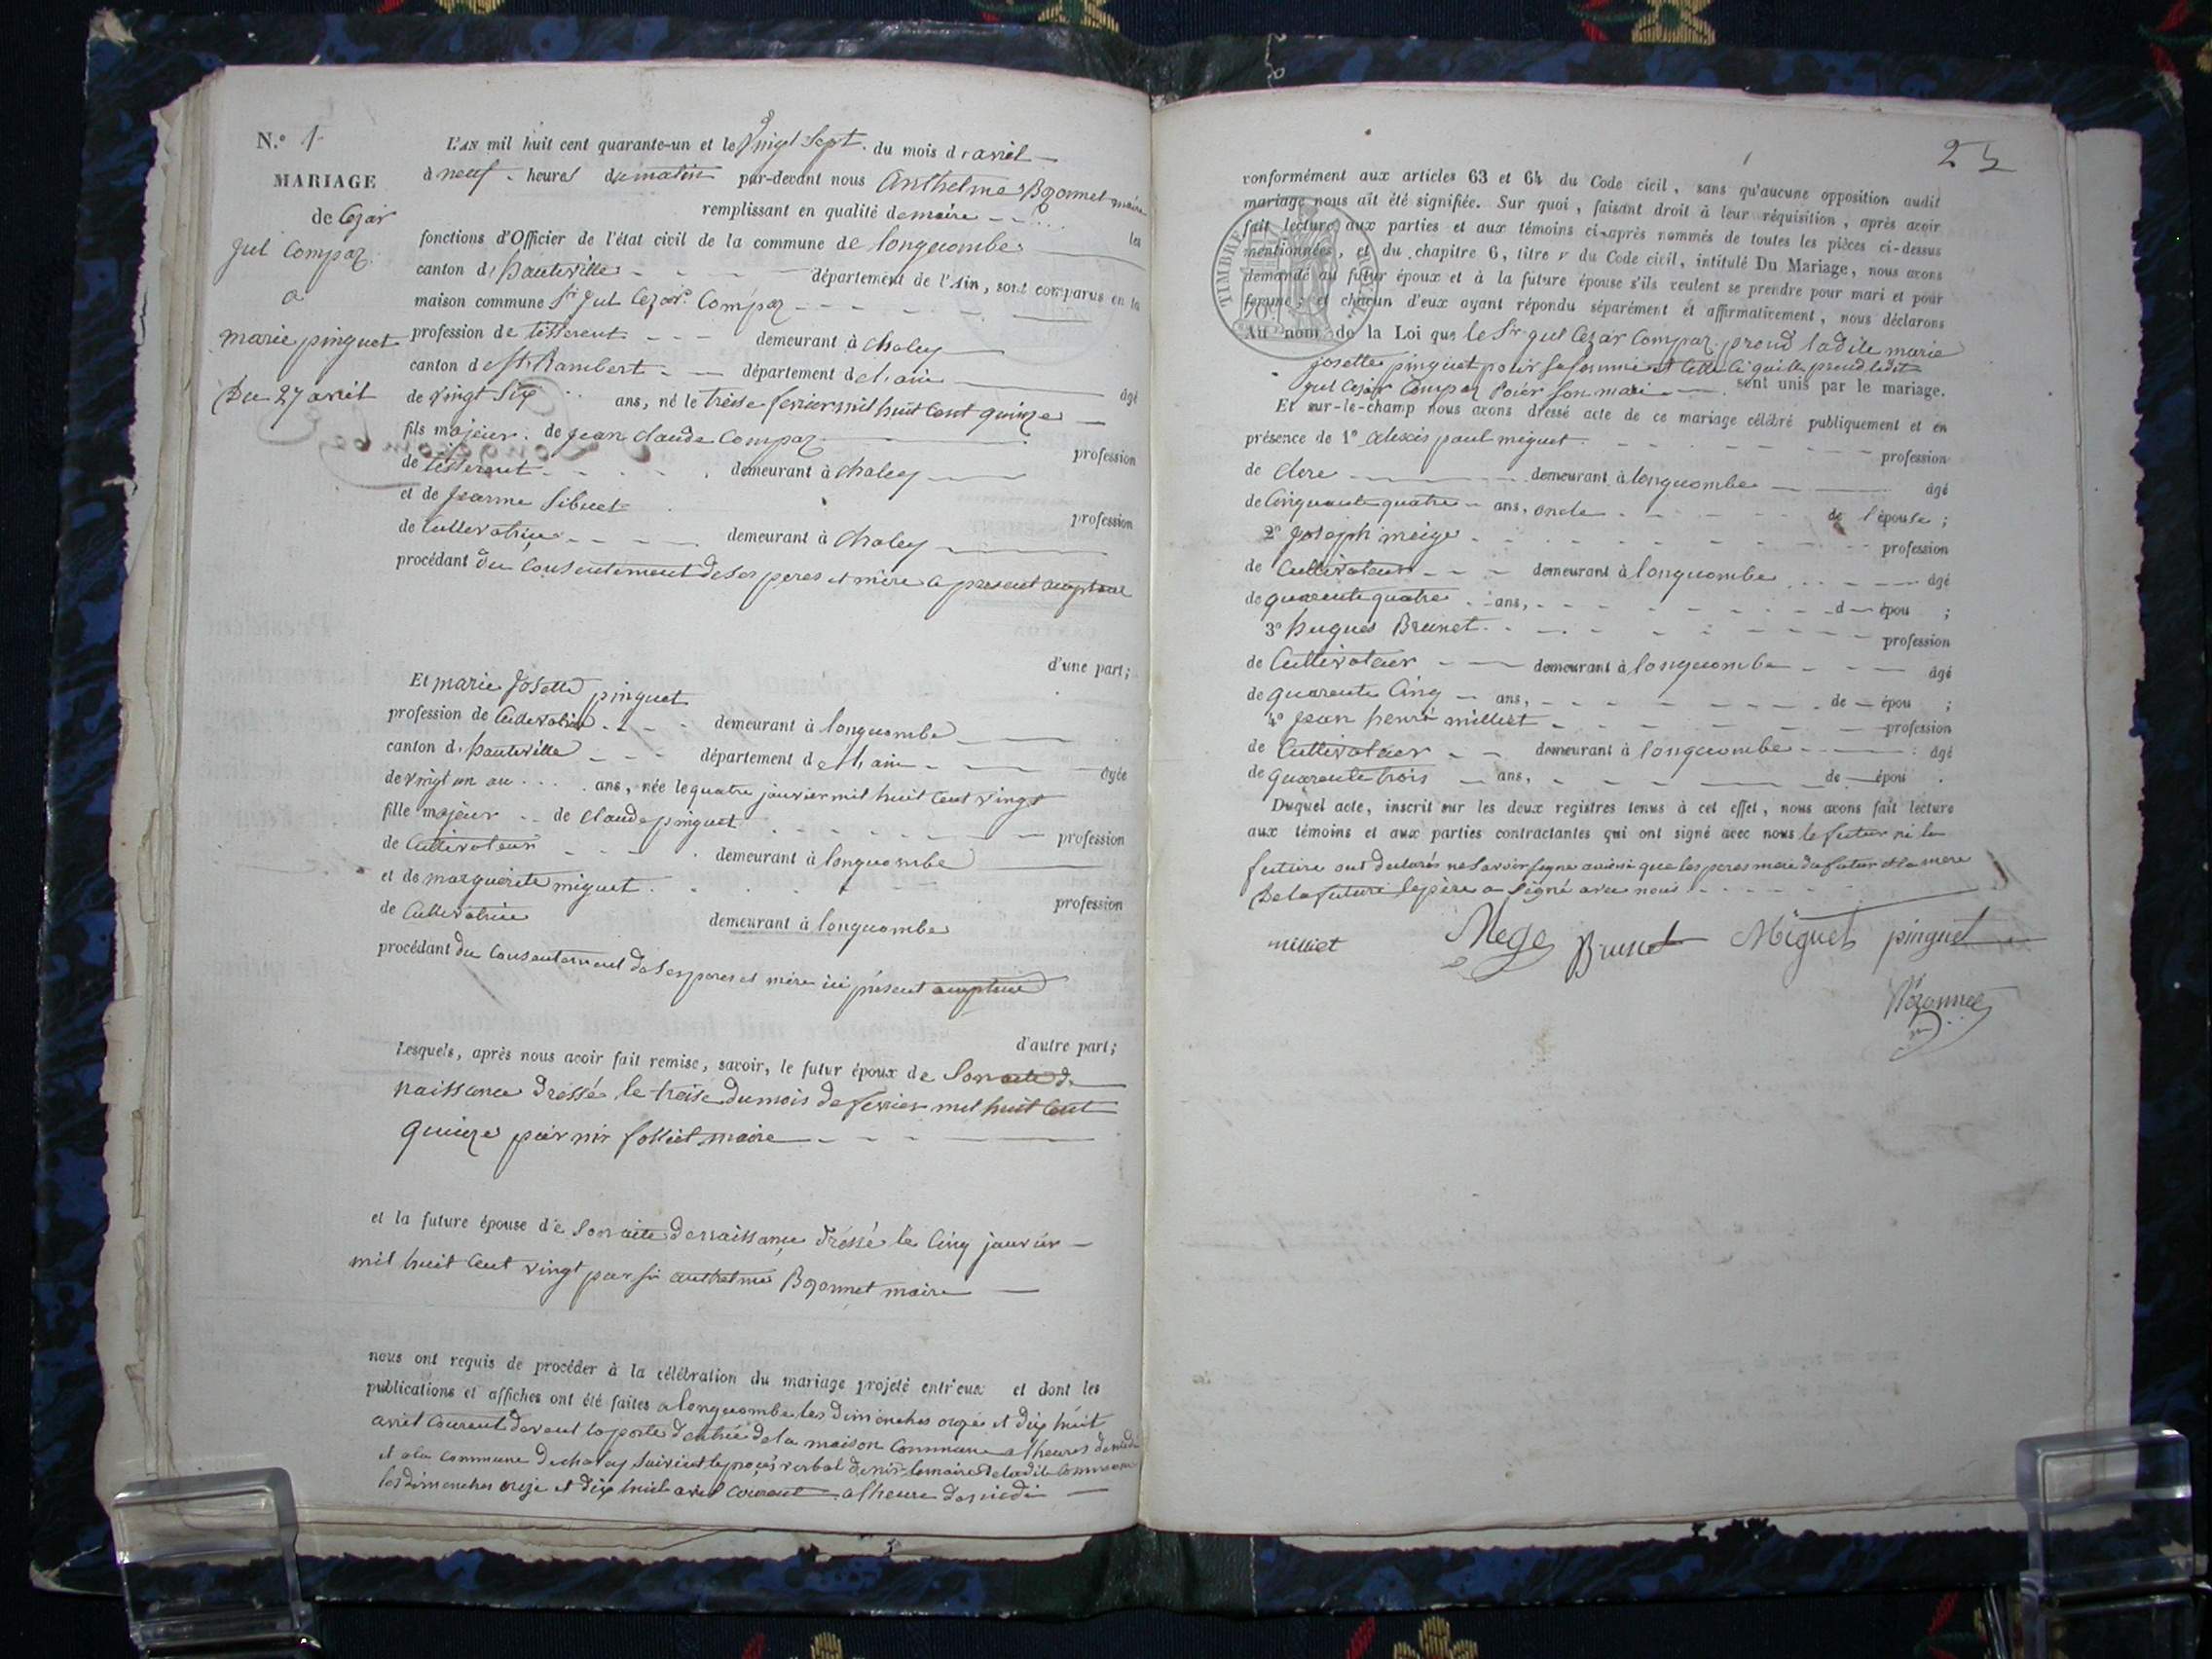 N.o 1
MARIAGE
de Cezar
Jul Compaz
a
marie pinguet
Du 27 avril
L'AN mil huit cent quarante-un et le Vingt Sept. du mois d'avril
à neuf heures du matin par-devant nous Anthelme Bozonnet maire
remplissant en qualité de maire les
fonctions d'Officier de l'état civil de la commune de longecombe
canton d'hauteville département de l'Ain, sont comparus en la
maison commune Sr Jul Cezar Compaz
profession de tisserent demeurant à chaley
canton de St Rambert département de l'ain âgé
de vingt six ans, né le treise fevrier mil huit cent quinze
fils majeur de jean claude Compaz profession
de tisserent demeurant à chaley
et de jeanne Sibuet profession
de Cultivatrice demeurant à chaley
procédant du Consentement de Ses peres et mère a present
d'une part;
Et marie Josette pinguet
profession de Cultivatrice demeurant à longecombe
canton d'hauteville département de l'ain âgée
de vingt un an ans, née le quatre janvier mil huit cent vingt
fille majeur de claude pinguet profession
de Cultivateur demeurant à longecombe
et de marguerite miguet profession
de Cultivatrice demeurant à longecombe
procédant du Consentement de Ses peres et mère ici présent
d'autre part;
Lesquels, après nous avoir fait remise, savoir, le futur époux de Son acte de
naissance dressé le treise du mois de fevrier mil huit Cent
quinze par mr folliet maire
et la future épouse de Son acte de naissance dressé le Cinq janvier
mil huit Cent vingt par Sr anthelme Bozonnet maire
nous ont requis de procéder à la célébration du mariage projeté entr'eux et dont les
publications et affiches ont été faites a longecombe les dimenches onze et dix huit
avril Courent devent la porte d'entrée de la maison Commune a lheures de midi
et a la commune de chaley Suivent le procés verbal de mr le maire de ladite Commune
les dimenches onze et dix huit avril Courent a lheure de midi
25
conformément aux articles 63 et 64 du Code civil, sans qu'aucune opposition audit
mariage nous ait été signifiée. Sur quoi, faisant droit à leur réquisition, après avoir
fait lecture aux parties et aux témoins ci-après nommés de toutes les pièces ci-dessus
mentionnées, et du chapitre 6, titre v du Code civil, intitulé Du Mariage, nous avons
demandé au futur époux et à la future épouse s'ils veulent se prendre pour mari et pour
femme; et chacun d'eux ayant répondu séparément et affirmativement, nous déclarons
Au nom de la Loi que le Sr jul Cezar Compaz prend ladite marie
josette pinguet pour Sa femme et Celle Ci quelle prend ledit
jul Cezar Compaz Pour Son mari sont unis par le mariage.
Et sur-le-champ nous avons dressé acte de ce mariage célébré publiquement et en
présence de 1o alexis paul miguet profession
de clerc demeurant à longecombe âgé
de Cinquante quatre ans, oncle de l'épouse;
2o joseph meige profession
de Cultivateur demeurant à longecombe âgé
de quarente quatre ans, d épou ;
3o hugues Brunet profession
de Cultivateur demeurant à longecombe âgé
de quarente Cinq ans, de épou ;
4o jean henri milliet profession
de Cultivateur demeurant à longecombe âgé
de quarente trois ans, de épou .
Duquel acte, inscrit sur les deux registres tenus à cet effet, nous avons fait lecture
aux témoins et aux parties contractantes qui ont signé avec nous le futur ni la
future ont declarés ne Savoir Signe ainsi que les peres mere du futur et la mere
De la future le père a Signé avec nous
milliet Mege Brunet Miguet pinguet
Bozonnet
TIMBRE ROYAL